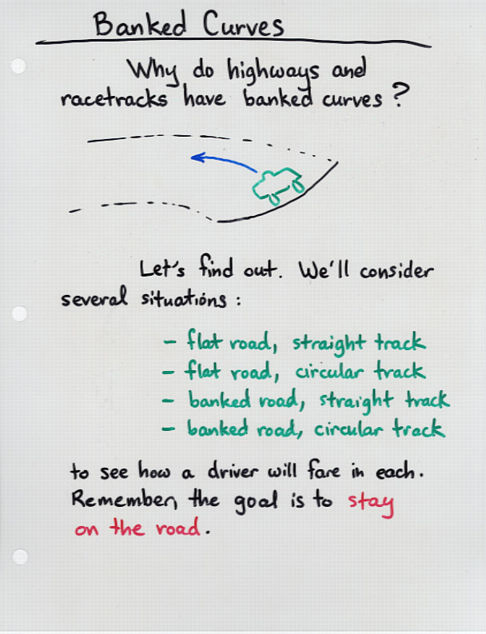 Banked Curves
Why do highways and
racetracks have banked curves?
Let's find out. We'll consider
several situations:
- flat road, straight track
- flat road, circular track
- banked road, straight track
- banked road, circular track
to see how a driver will fare in each.
Remember, the goal is to stay
on the road.